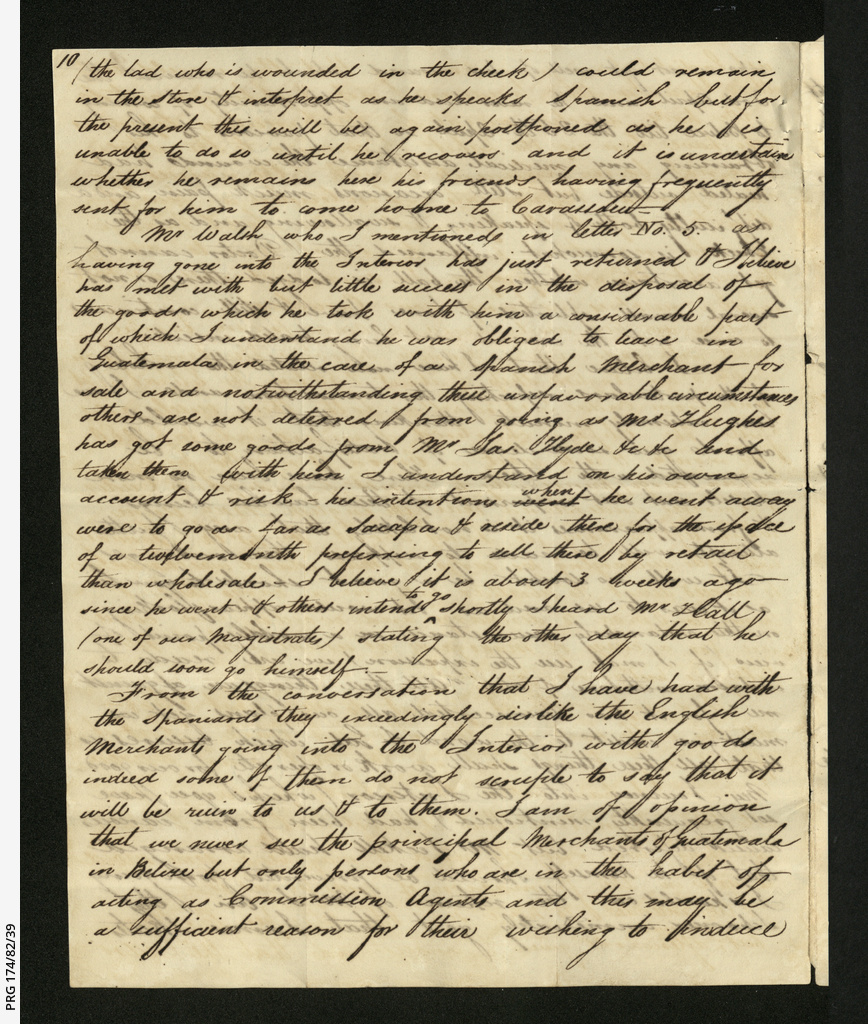 10
(the lad who is wounded in the cheek) could remain
in the Store & interpret as he speaks Spanish but for
the present this will be again postponed as he is
unable to do so until he recovers and it is uncertain
whether he remains here his friends having frequently
sent for him to come home to Carassaw -
Mr Walsh who I mentioned in letter No. 5 as
having gone into the Interior has just returned & I believe
has met with but little success in the disposal of
the goods which he took with him a considerable part
of which I understand he was obliged to leave in
Guatemala in the care of a Spanish Merchant for
sale and notwithstanding these unfavorable circumstances
others are not deterred from going as Mr Hughes
has got some goods from Mr Jas. Hyde &c &c and
taken them with him I understand on his own
account & risk - his intentions went when he went away
were to go as far as Sacapa & reside there for the space
of a twelvemonth preferring to sell there by retail
than wholesale - I believe it is about 3 weeks ago
since he went & others intend to go shortly I heard Mr Hall
(one of our Magistrates) stating the other day that he
should soon go himself -
From the conversation that I have had with
the Spaniards they exceedingly dislike the English
Merchants going into the Interior with goods
indeed some of them do not scruple to say that it
will be ruin to us & to them. I am of opinion
that we never see the principal Merchants of Guatemala
in Belize but only persons who are in the habit of
acting as Commission Agents and this may be
a sufficient reason for their wishing to induce
PRG 174/82/39